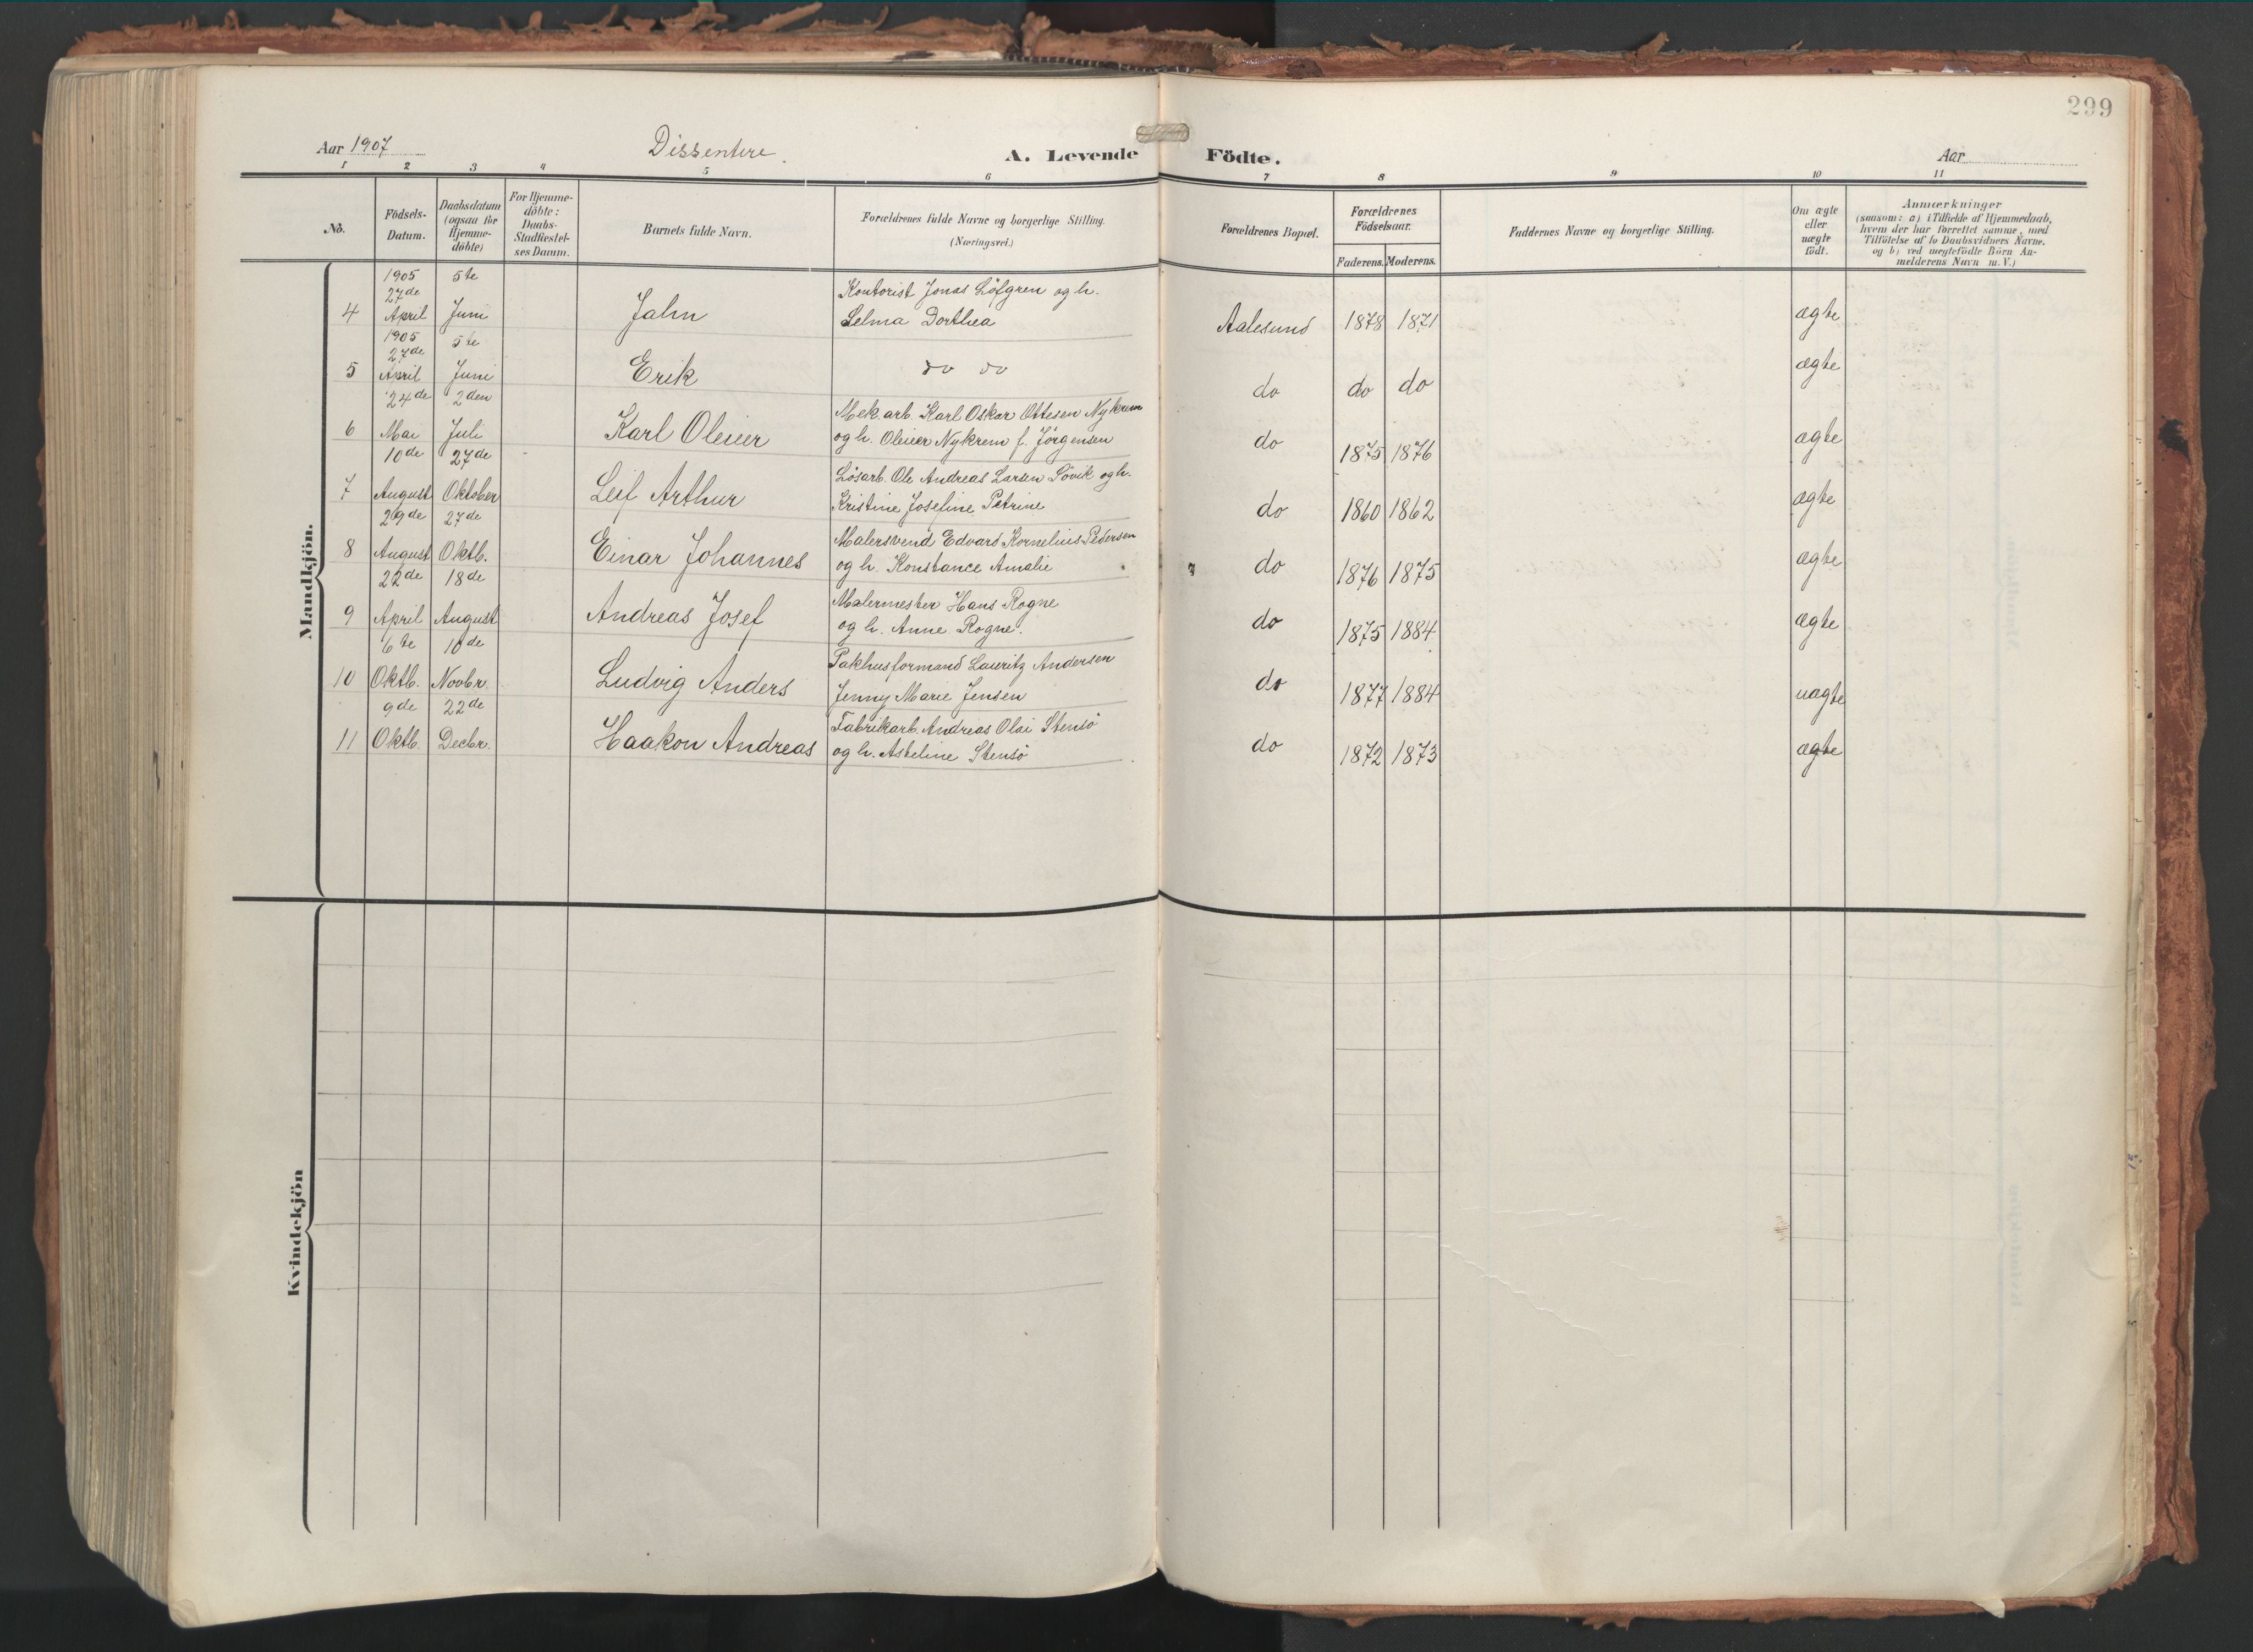 299
Aar 1907
Dissentere.
A. Levende Födte.
Aar
1 2 3 4 5 6 7 8 9 10 11
No.
Födsels-
Datum.
Daabsdatum
(ogsaa for
Hjemme-
döbte)
For Hjemme-
döbte:
Daabs-
Stadfæstel-
ses Datum.
Barnets fulde Navn.
Forældrenes fulde Navne og borgerlige Stilling.
(Næringsvei.)
Forældrenes Bopæl.
Forældrenes
Födselsaar.
Faderens. Moderens.
Faddernes Navne og borgerlige Stilling.
Om ægte
eller
uægte
födt.
Anmærkninger
(saasom: a) i Tilfælde af Hjemmedaab,
hvem der har forrettet samme, med
Tilföielse af to Daabsvidners Navne.
og b) ved uægtefödte Börn An-
melderens Navn m. V.)
Mandkjön.
1905 5te
27de
4 April Juni Jahn Kontorist Jonas Löfgren og h.
Selma Dorthea Aalesund 1878 1871 ægte
1905 5te
27de
5 April Juni Erik do do do do do ægte
24de 2den
6 Mai Juli Karl Oleuer Mek. arb. Karl Oskar Ottesen Nykrem
og h. Oleuer Nykrem f. Jörgensen do 1875 1876 ægte
10de 27de
7 August Oktober Leif Arthur Lösarb. Ole Andreas Larsen Lövik og h.
Kristine Josefine Petrine do 1860 1862 ægte
29de 27de
8 August Oktb. Einar Johannes Malersvend Edvard Kornelius Pedersen
og h. Konstance Amalie do 1876 1875 ægte
22de 18de
9 April August Andreas Josef Malermester Hans Rogne
og h. Anne Rogne. do 1875 1884 ægte
6te 10de
10 Oktb. Novbr. Ludvig Anders Pakhusformand Lauritz Andersen
Jenny Marie Jensen do 1877 1884 uægte
9de 22de
11 Oktb. Decbr. Haakon Andreas Fabrikarb. Andreas Olai Stensö
og h. Asteline Stensö do 1872 1873 ægte
Kvindekjön